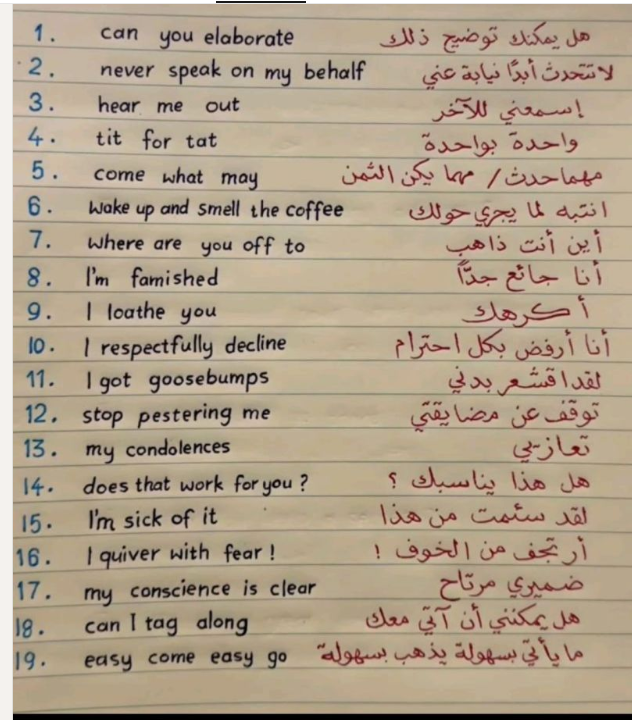 1. can you elaborate هل يمكنك توضيح ذلك
2. never speak on my behalf لا تتحدث أبدًا نيابة عني
3. hear me out إسمعني للآخر
4. tit for tat واحدة بواحدة
5. come what may مهما حدث / مهما يكن الثمن
6. Wake up and smell the coffee انتبه لما يجري حولك
7. where are you off to أين أنت ذاهب
8. I'm famished أنا جائع جدًّا
9. I loathe you أكرهك
10. I respectfully decline أنا أرفض بكل احترام
11. I got goosebumps لقد اقشعر بدني
12. stop pestering me توقف عن مضايقتي
13. my condolences تعازيي
14. does that work for you ? هل هذا يناسبك ؟
15. I'm sick of it لقد سئمت من هذا
16. I quiver with fear ! أرتجف من الخوف !
17. my conscience is clear ضميري مرتاح
18. can I tag along هل يمكنني أن آتي معك
19. easy come easy go ما يأتي بسهولة يذهب بسهولة